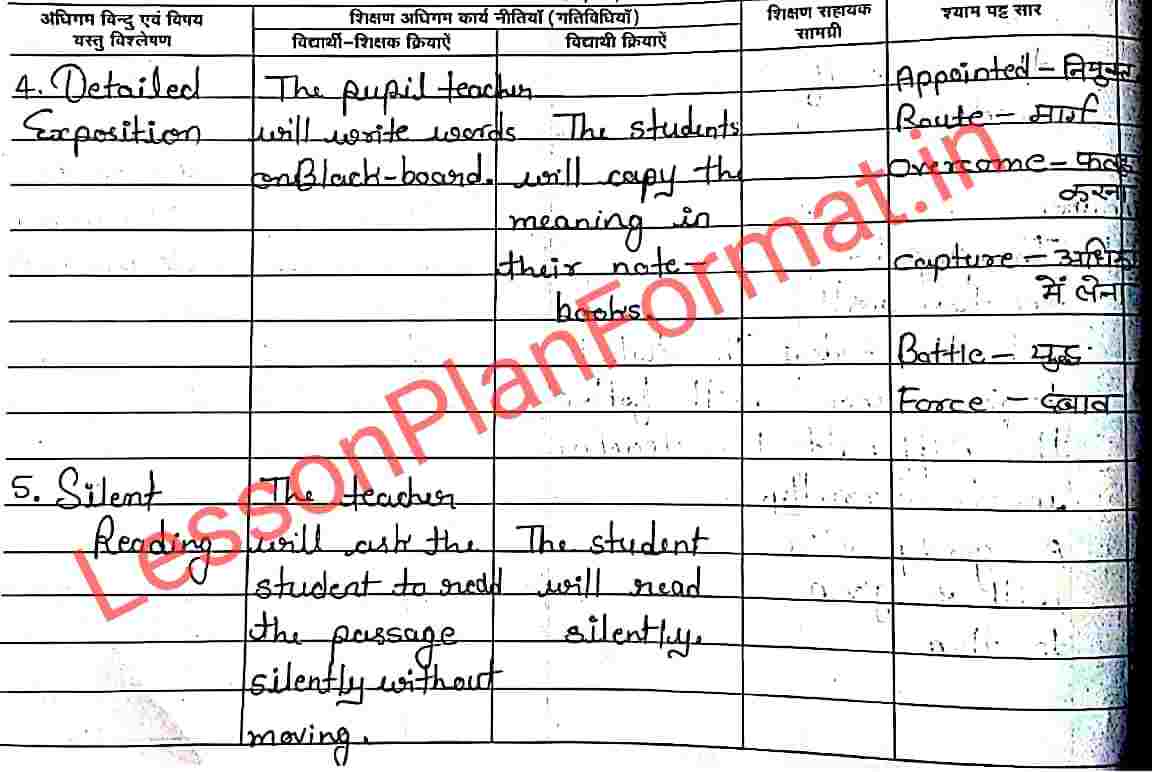 अधिगम विन्दु एवं विषय
यस्तु विश्लेषण
शिक्षण अधिगम कार्य नीतियाँ (गतिविधियाँ)
विद्यार्थी-शिक्षक क्रियाऐं
विद्यार्थी क्रियाऐं
शिक्षण सहायक
सामग्री
श्याम पट्ट सार
4. Detailed
Exposition
The pupil teacher
will write words
on Black-board.
The students
will capy the
meaning in
their note-
books.
Appointed - नियुक्त
Route - मार्ग
Overcome -
करना
Capture -
में लेना
Battle - युद्ध
Force - दबाव
5. Silent
Reading
The teacher
will ask the
student to read
the passage
silently without
moving.
The student
will read
silently.
LessonPlanFormat.in